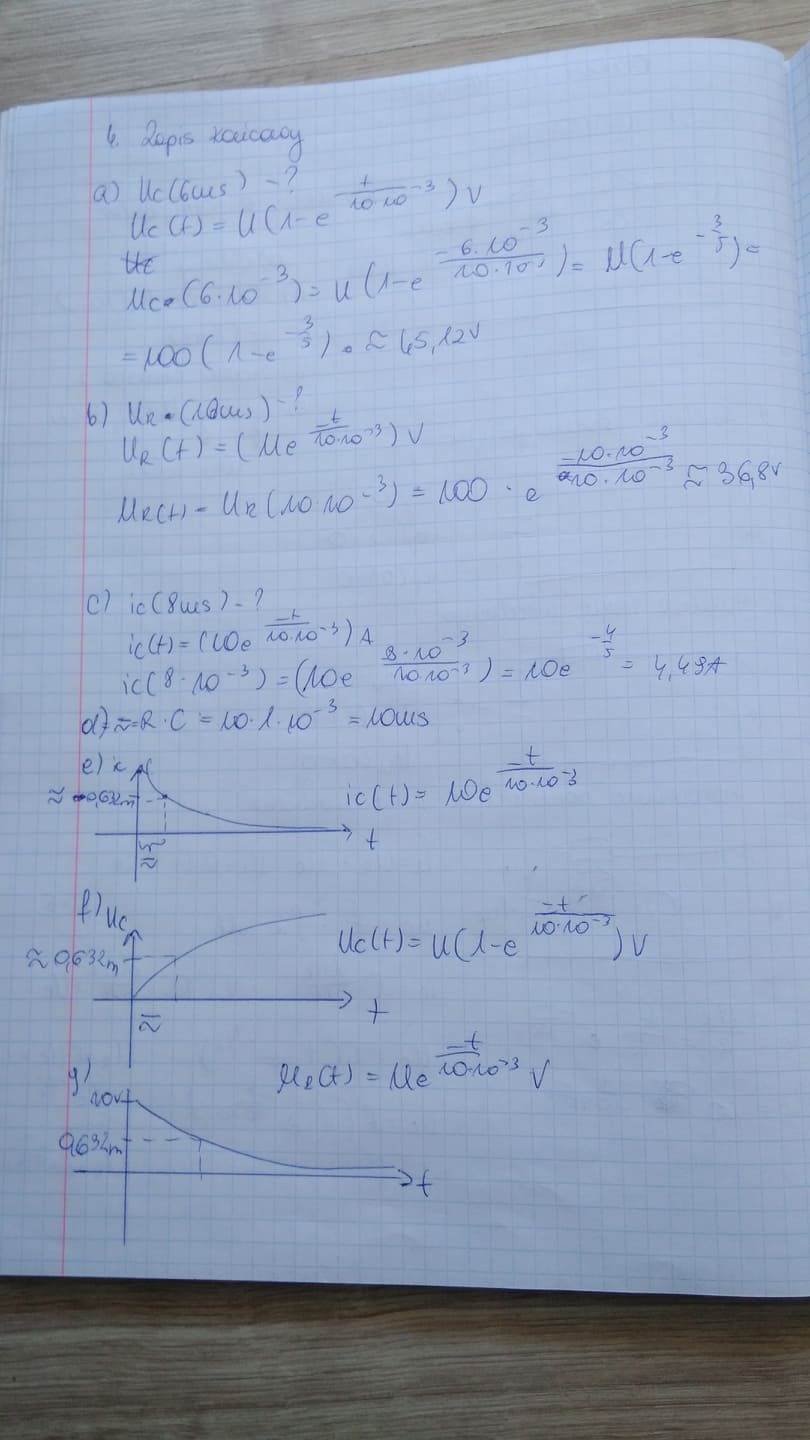 4. Zapis końcowy
a) Uc(6ms) - ?
Uc(t) = U(1-e^(t/(10·10^-3))) V
Uc
Uc(6·10^-3) = U(1-e^(-6·10^-3/(10·10^-3))) = U(1-e^(-3/5)) =
= 100(1-e^(-3/5)) ≈ 45,12V
b) UR(10ms) - ?
UR(t) = (Ue^(-t/(10·10^-3))) V
UR(t) = UR(10·10^-3) = 100 · e^(-10·10^-3/(10·10^-3)) ≈ 36,8V
c) ic(8ms) - ?
ic(t) = (10e^(-t/(10·10^-3))) A
ic(8·10^-3) = (10e^(8·10^-3/(10·10^-3))) = 10e^(-4/5) = 4,49A
d) τ = R·C = 10·1·10^-3 = 10ms
e) ic
≈ 0,632m
t
ic(t) = 10e^(-t/(10·10^-3))
f) Uc
≈ 0,632m
τ
t
Uc(t) = U(1-e^(-t/(10·10^-3))) V
g)
UR(t) = Ue^(-t/(10·10^-3)) V
0,632m
t